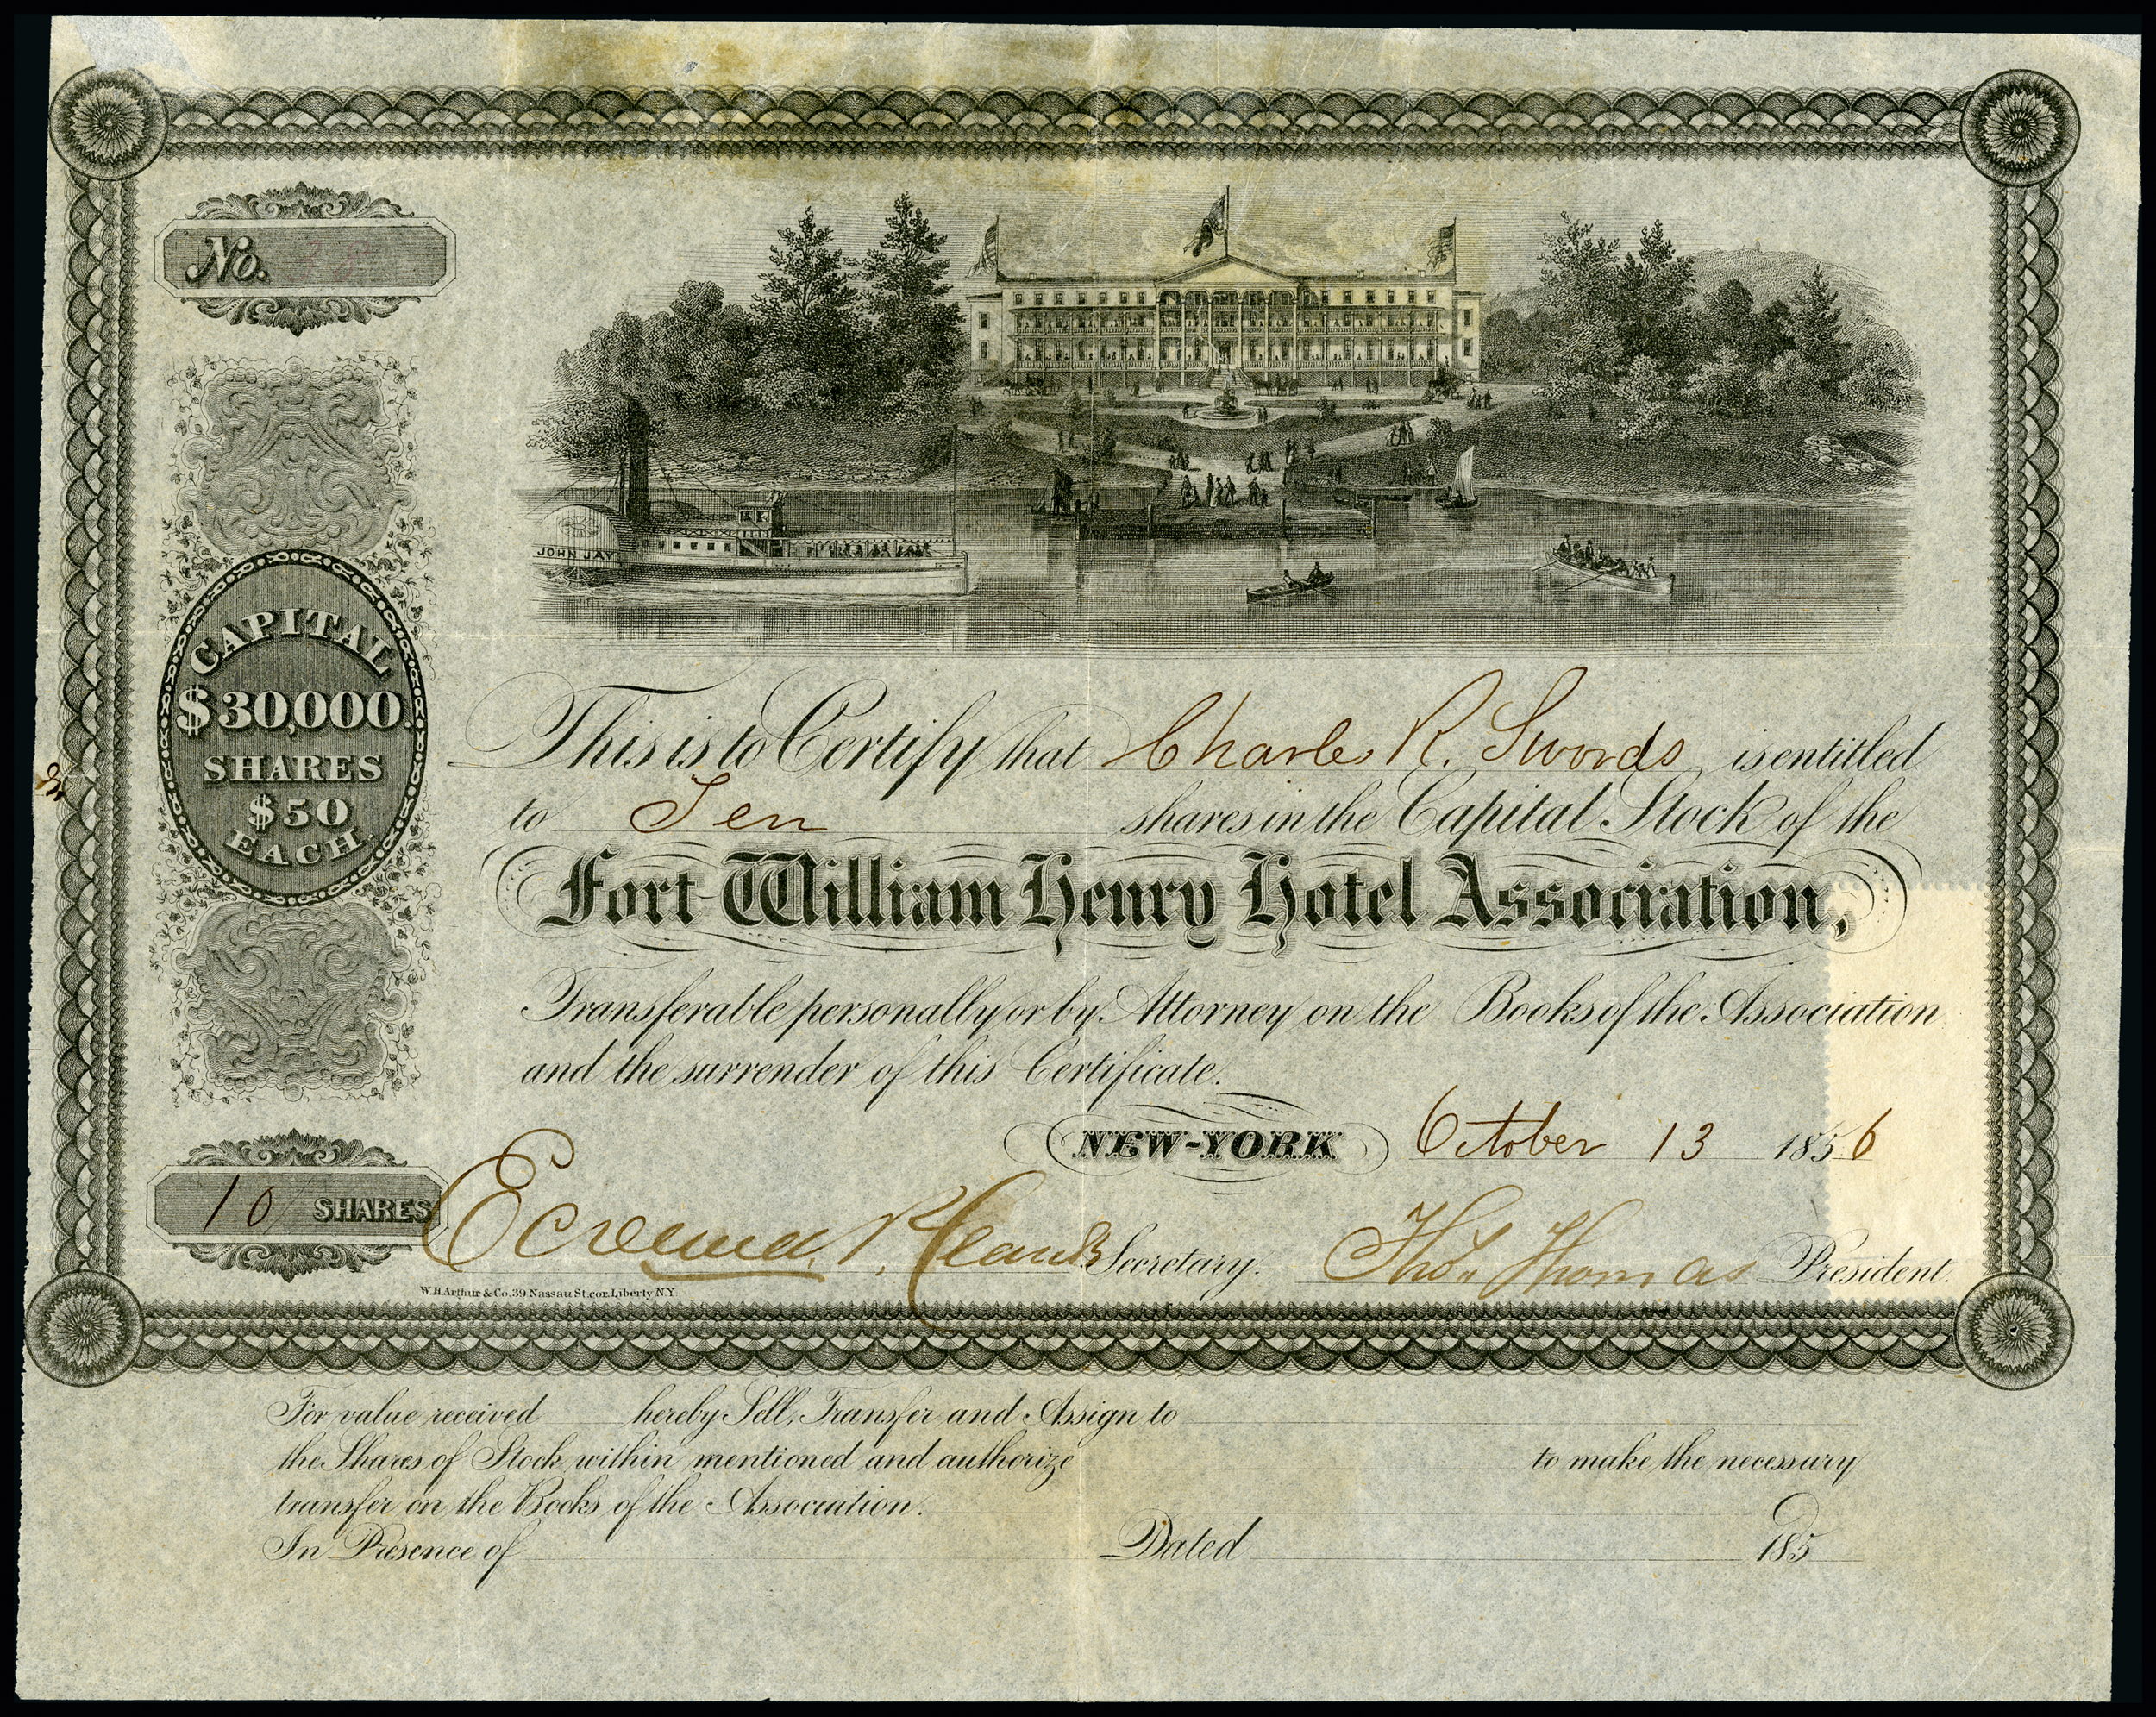 No.
JOHN JAY
CAPITAL
$30,000
SHARES
$50
EACH.
This is to Certify that Charles R. Swords is entitled
to Ten shares in the Capital Stock of the
Fort William Henry Hotel Association,
Transferable personally or by Attorney on the Books of the Association
and the surrender of this Certificate.
NEW-YORK October 13 1856
10 SHARES
Secretary. Thos. Thomas President.
W.H. Arthur & Co. 39 Nassau St. cor. Liberty N.Y.
For value received hereby Sell, Transfer and Assign to
the Shares of Stock within mentioned and authorize to make the necessary
transfer on the Books of the Association.
In Presence of Dated 185